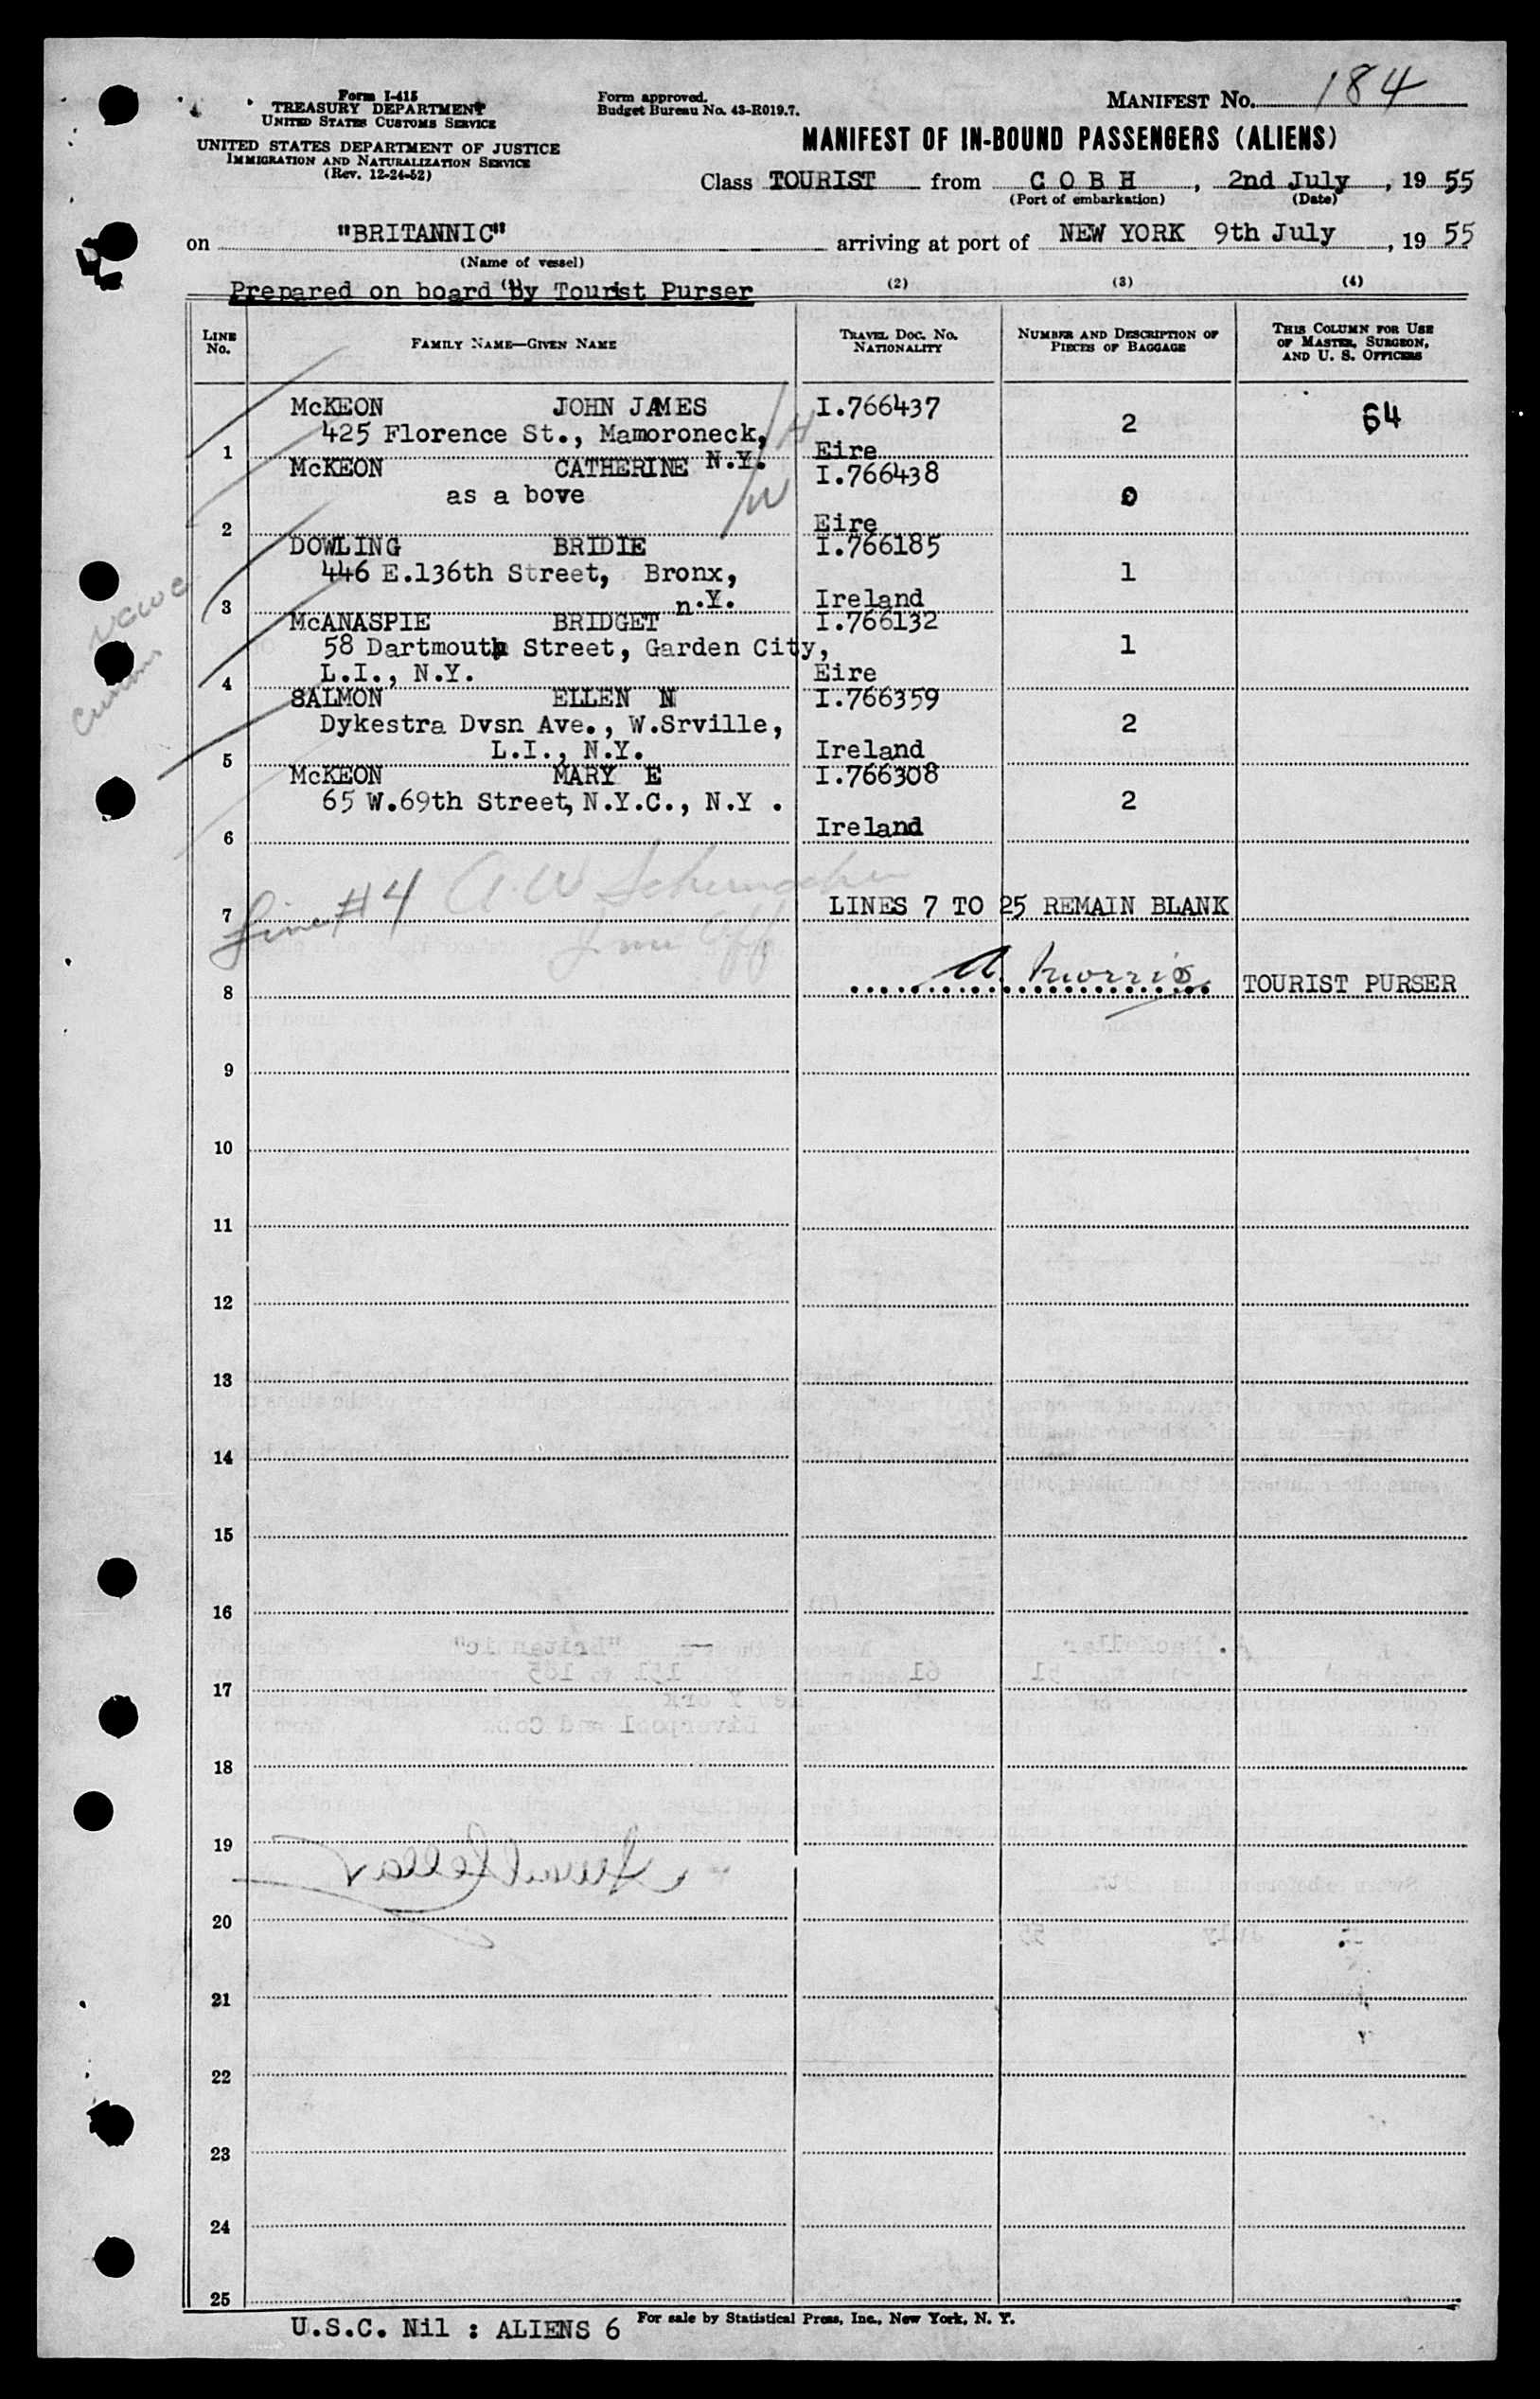 Form I-415
TREASURY DEPARTMENT
UNITED STATES CUSTOMS SERVICE
UNITED STATES DEPARTMENT OF JUSTICE
IMMIGRATION AND NATURALIZATION SERVICE
(Rev. 12-24-52)
Form approved.
Budget Bureau No. 43-R019.7.
MANIFEST NO. 184
MANIFEST OF IN-BOUND PASSENGERS (ALIENS)
Class TOURIST from COBH, 2nd July, 19 55
(Port of embarkation) (Date)
on "BRITANNIC" arriving at port of NEW YORK 9th July, 19 55
(Name of vessel)
Prepared on board By Tourist Purser
(1) (2) (3) (4)
LINE NO. FAMILY NAME—GIVEN NAME TRAVEL DOC. NO. NATIONALITY NUMBER AND DESCRIPTION OF PIECES OF BAGGAGE THIS COLUMN FOR USE OF MASTER, SURGEON, AND U. S. OFFICERS
McKEON JOHN JAMES I.766437 2 64
425 Florence St., Mamoroneck, H
1 N.Y. Eire
McKEON CATHERINE I.766438
as a bove W 0
2 Eire
DOWLING BRIDIE I.766185
446 E.136th Street, Bronx, 1
3 n.Y. Ireland
McANASPIE BRIDGET I.766132
58 Dartmouth Street, Garden City, 1
4 L.I., N.Y. Eire
SALMON ELLEN N I.766359
Dykestra Dvsn Ave., W.Srville, 2
5 L.I., N.Y. Ireland
McKEON MARY E I.766308
65 W.69th Street, N.Y.C., N.Y . 2
6 Ireland
Line #4 A.W Schumacher
7 LINES 7 TO 25 REMAIN BLANK
Imm Off
8 A. Morris TOURIST PURSER
9
10
11
12
13
14
15
16
17
18
19
20
21
22
23
24
25
U.S.C. Nil : ALIENS 6 For sale by Statistical Press, Inc., New York, N. Y.